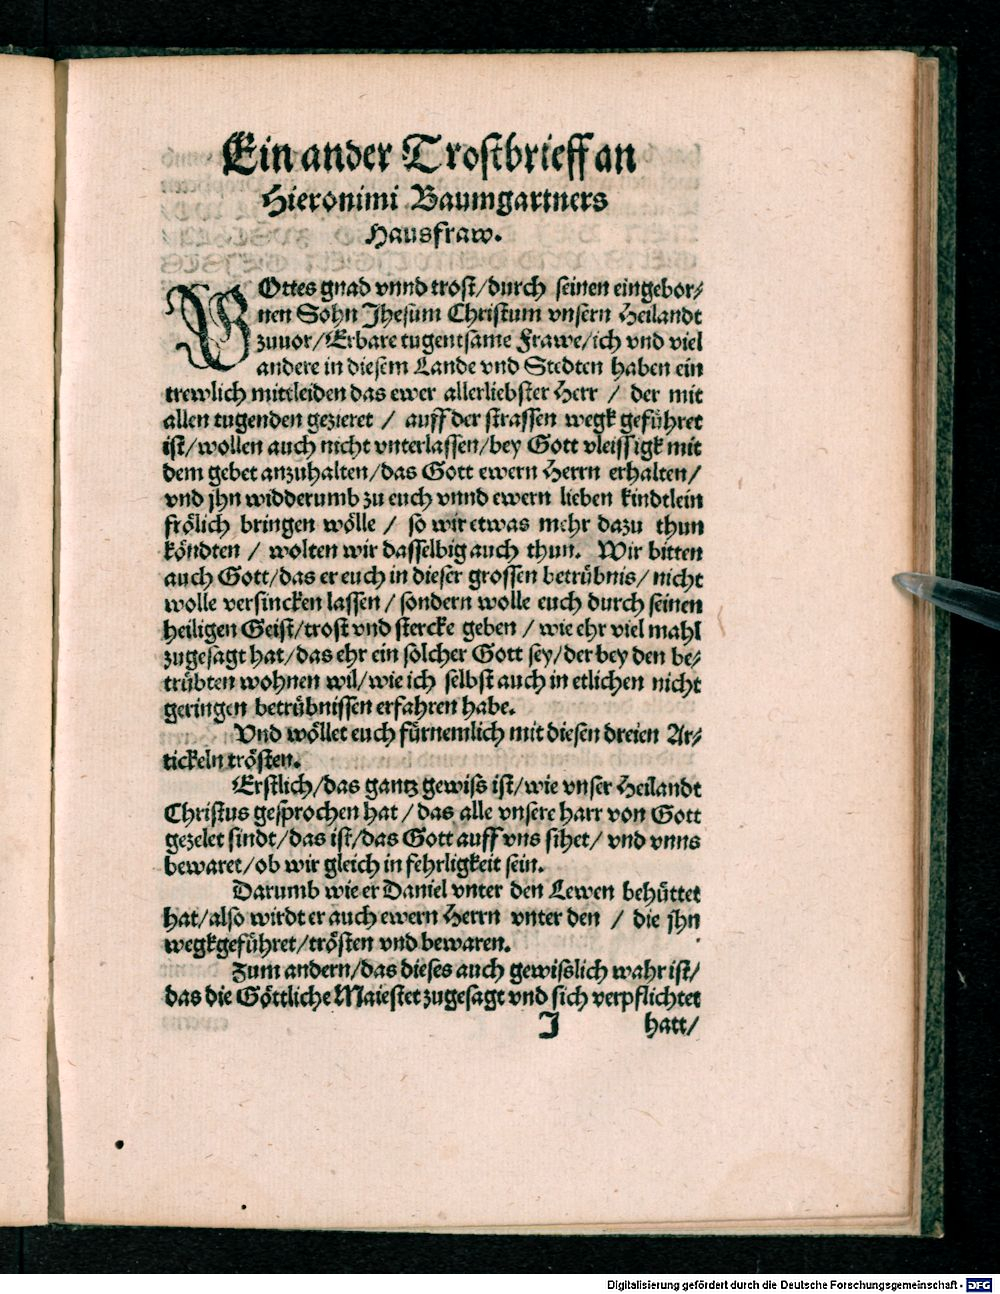 Ein ander Trostbrieff an
Hieronimi Baumgartners
Hausfraw.
GOttes gnad vnnd trost/durch seinen eingebor-
nen Sohn Jhesum Christum vnsern Heilandt
zuuor/Erbare tugentsame Frawe/ich vnd viel
andere in diesem Lande vnd Stedten haben ein
trewlich mittleiden das ewer allerliebster Herr / der mit
allen tugenden gezieret / auff der strassen wegk geführet
ist/wollen auch nicht vnterlassen/bey Gott vleissigk mit
dem gebet anzuhalten/das Gott ewern Herrn erhalten/
vnd jhn widderumb zu euch vnnd ewern lieben kindtlein
frölich bringen wölle / so wir etwas mehr dazu thun
köndten / wolten wir dasselbig auch thun. Wir bitten
auch Gott/das er euch in dieser grossen betrübnis/nicht
wolle versincken lassen/sondern wolle euch durch seinen
heiligen Geist/trost vnd stercke geben/wie ehr viel mahl
zugesagt hat/das ehr ein solcher Gott sey/der bey den be-
trübten wohnen wil/wie ich selbst auch in etlichen nicht
geringen betrübnissen erfahren habe.
Vnd wöllet euch fürnemlich mit diesen dreien Ar-
tickeln trösten.
Erstlich/das gantz gewiss ist/wie vnser Heilandt
Christus gesprochen hat/das alle vnsere harr von Gott
gezelet sindt/das ist/das Gott auff vns sihet/ vnd vnns
bewaret/ob wir gleich in fehrligkeit sein.
Darumb wie er Daniel vnter den Lewen behüttet
hat/also wirdt er auch ewern Herrn vnter den / die jhn
wegkgeführet/trösten vnd bewaren.
Zum andern/das dieses auch gewisslich wahr ist/
das die Göttliche Maiestet zugesagt vnd sich verpflichtet
J hatt/
Digitalisierung gefördert durch die Deutsche Forschungsgemeinschaft - DFG